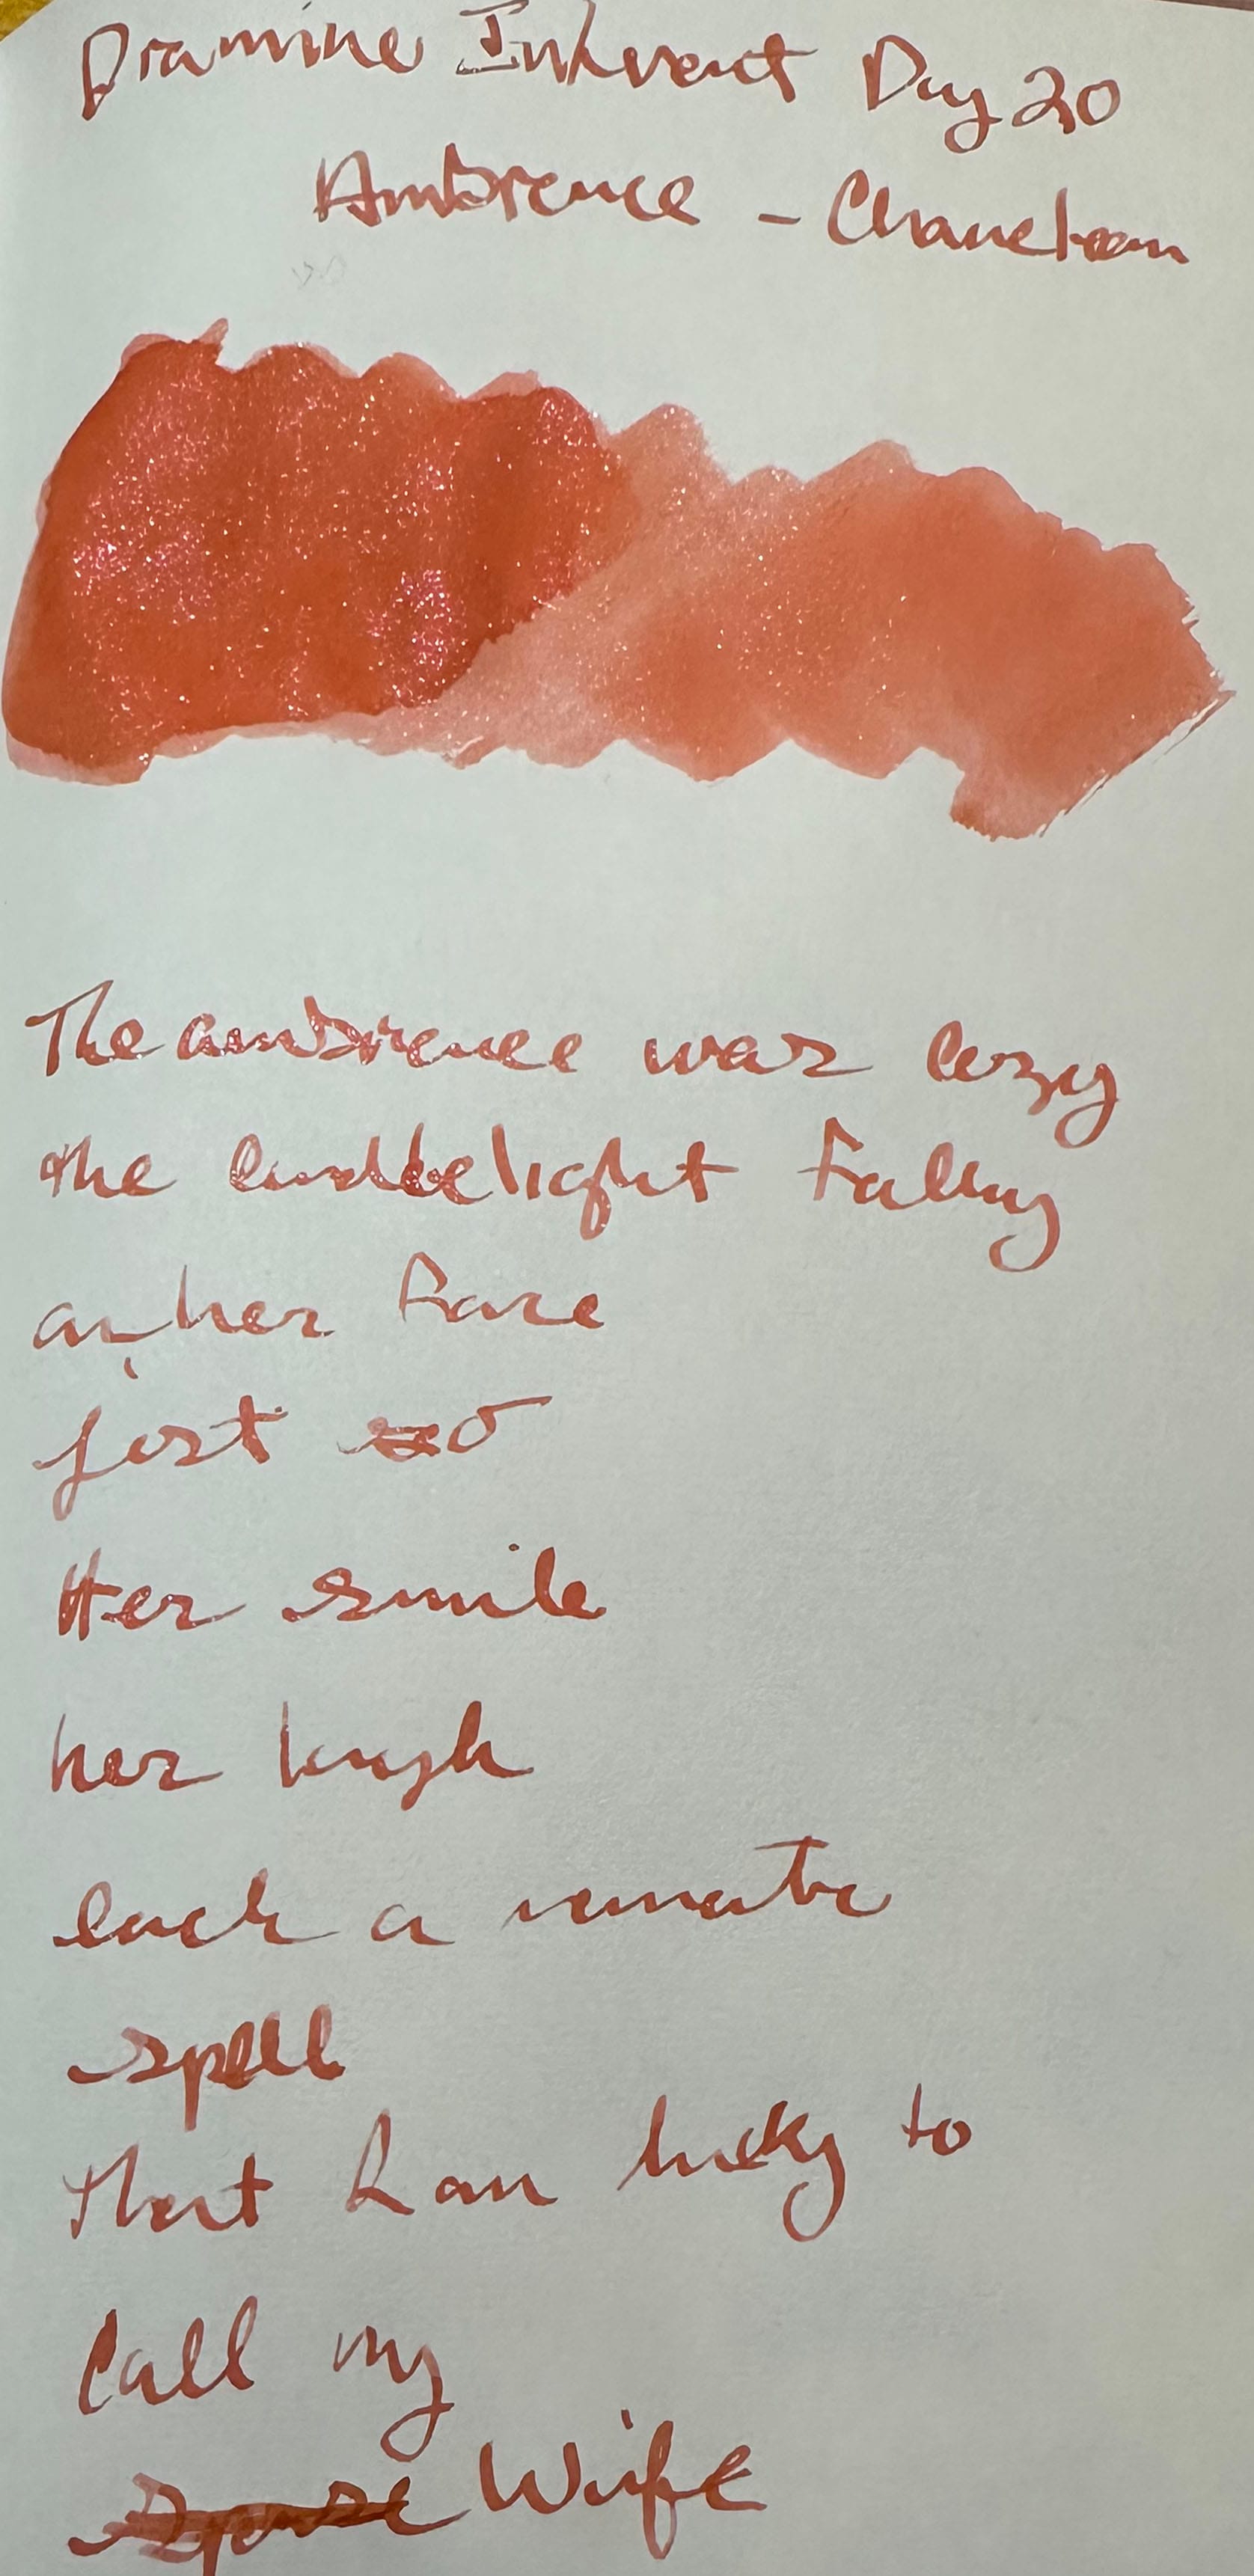 Diamine Inkvent Day 20
Ambience - Chameleon
The ambience was cozy
the candlelight falling
on her face
just so
Her smile
her laugh
each a romantic
spell
that I am lucky to
Call my
Wife